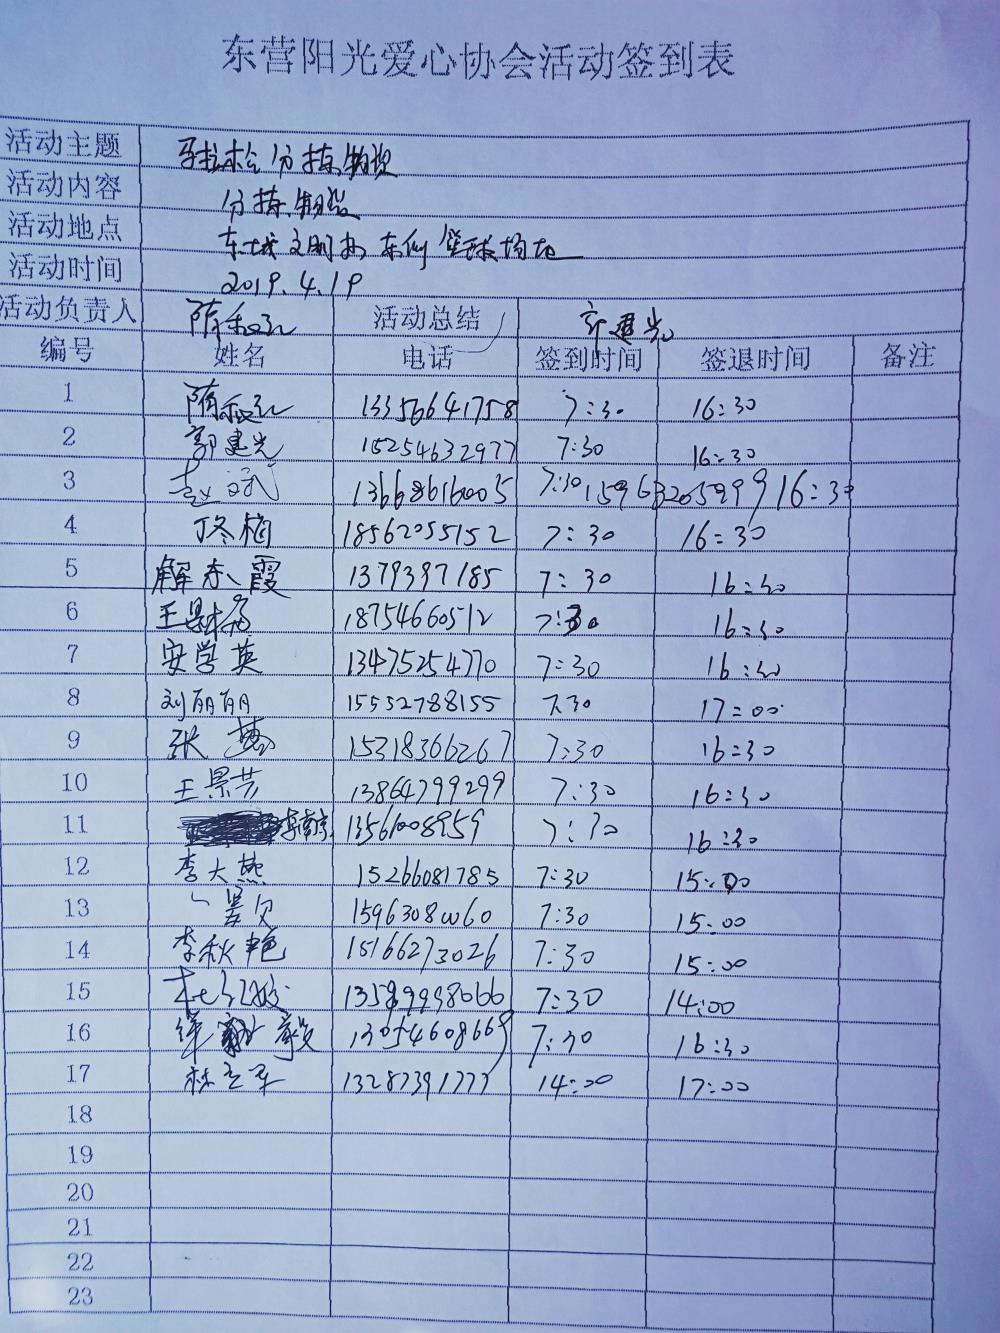 东营阳光爱心协会活动签到表
活动主题 马拉松分拣物资
活动内容 分拣物资
活动地点 东城文明办东侧篮球场地
活动时间 2019.4.19
活动负责人 隋 活动总结 郭建光
编号 姓名 电话 签到时间 签退时间 备注
1 隋 13356641758 7:30 16:30
2 郭建光 15254632977 7:30 16:30
3 赵斌 13668616005 7:30 15963205999 16:30
4 丁冬梅 18562055152 7:30 16:30
5 解 霞 1379397185 7:30 16:30
6 王 18754660512 7:30 16:30
7 安学英 13475254770 7:30 16:30
8 刘丽丽 15552788155 7:30 17:00
9 张 15318366267 7:30 16:30
10 王景芳 13864799299 7:30 16:30
11 13561008959 7:30 16:30
12 李大燕 15266081785 7:30 15:00
13 7:30 15:00
14 李秋艳 15166273026 7:30 15:00
15 7:30 14:00
16 毅 13054608669 7:30 16:30
17 林 14:00 17:00
18
19
20
21
22
23